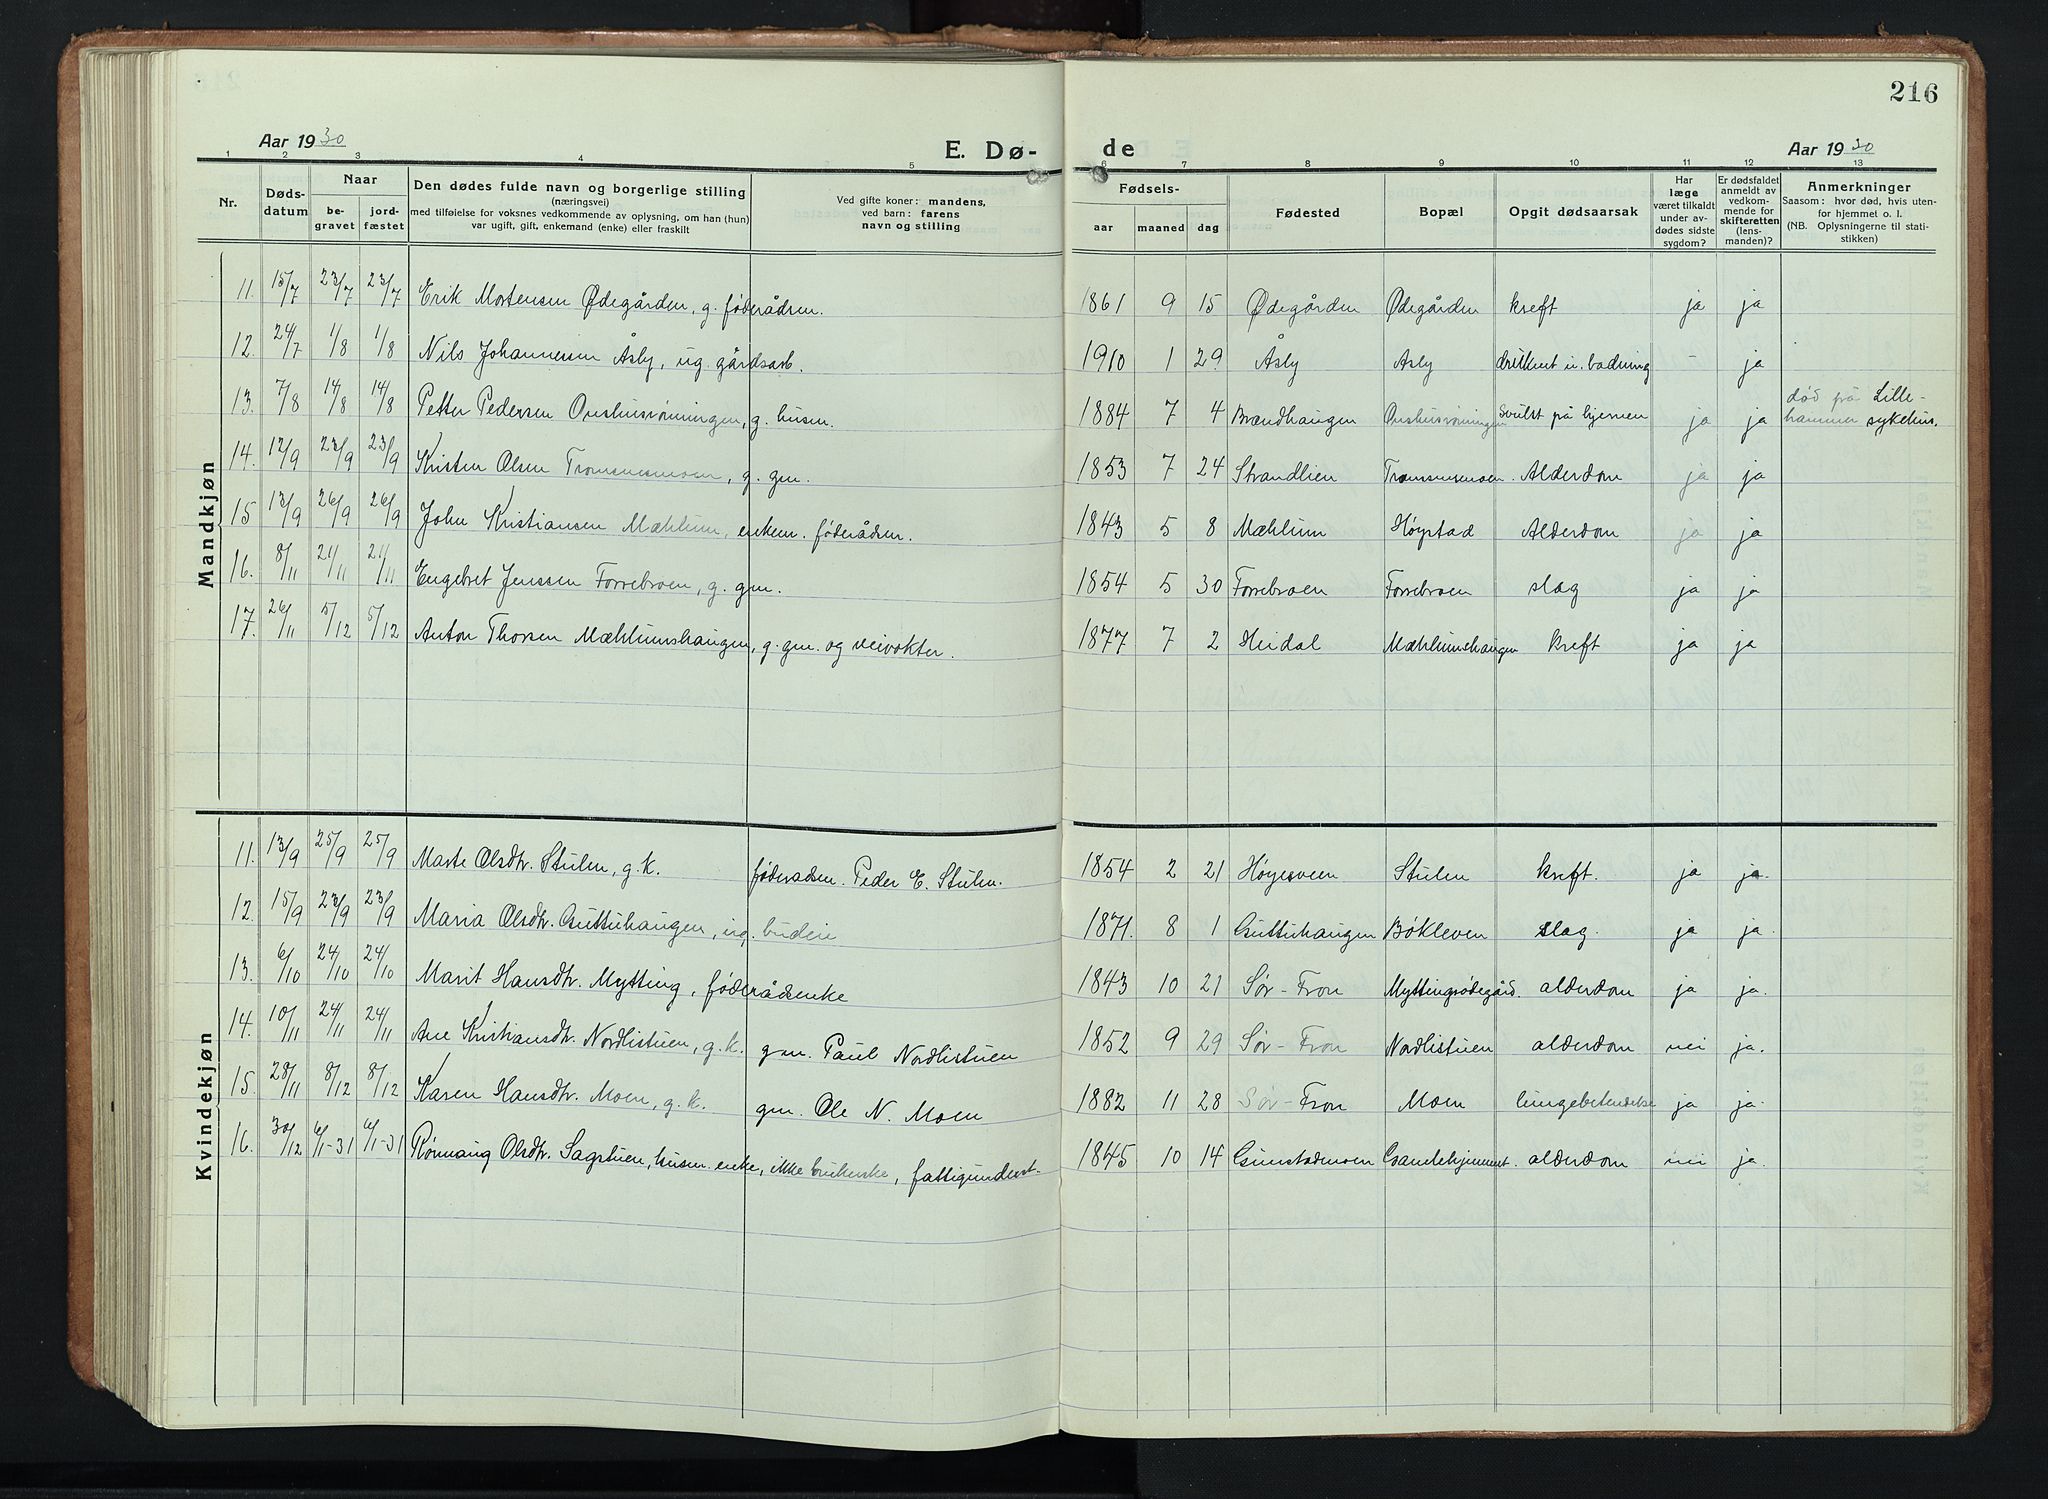 216
Aar 1930
E. Dø-
de
Aar 1930
1 2 3 4 5 6 7 8 9 10 11 12 13
Nr.
Døds-
datum
Naar
be-
gravet
jord-
fæstet
Den dødes fulde navn og borgerlige stilling
(næringsvei)
med tilføielse for voksnes vedkommende av oplysning, om han (hun)
var ugift, gift, enkemand (enke) eller fraskilt
Ved gifte koner: mandens,
ved barn: farens
navn og stilling
Fødsels-
aar maaned dag
Fødested
Bopæl
Opgit dødsaarsak
Har
læge
været tilkaldt
under av-
dødes sidste
sygdom?
Er dødsfaldet
anmeldt av
vedkom-
mende for
skifteretten
(lens-
manden)?
Anmerkninger
Saasom: hvor død, hvis uten-
for hjemmet o. l.
(NB. Oplysningerne til stati-
stikken)
Mandkjøn
11. 15/7 23/7 23/7 Erik Mortensen Ødegården, g. føderådsm. 1861 9 15 Ødegården Ødegården kreft ja ja
12. 24/7 1/8 1/8 Nils Johannessen Åsly, ug. gårdsarb. 1910 1 29 Åsly Asly druknet u. badning - ja
13. 7/8 14/8 14/8 Petter Pedersen Onshusrøningen, g. husm. 1884 7 4 Brændhaugen Onshusrøningen Svulst på hjernen ja ja død på Lille-
hammer sykehus.
14. 12/9 23/9 23/9 Kristen Olsen Tromsnesmoen, g. gm. 1853 7 24 Strandlien Tromsnesmoen. Alderdom ja ja
15 13/9 26/9 26/9 John Kristiansen Mæhlum, enkem. føderådsm. 1843 5 8 Mæhlum Høystad Alderdom ja ja
16. 8/11 21/11 21/11 Engebret Jenssen Forrebroen, g. gm. 1854 5 30 Forrebroen Forrebroen slag ja ja
17. 26/11 5/12 5/12 Anton Thorsen Mæhlumshaugen, g. gm. og veivokter. 1877 7 2 Heidal Mæhlumshaugen kreft ja ja
Kvindekjøn
11. 13/9 25/9 25/9 Marte Olsdtr. Stulen, g. k. føderadsm. Peder E. Stulen. 1854 2 21 Høyesveen Stulen kreft. ja ja.
12. 15/9 23/9 23/9 Maria Olsdtr. Guttuhaugen, ug. budeie 1871. 8 1 Guttuhaugen Bøkleven slag. ja ja.
13. 6/10 24/10 24/10 Marit Hansdtr. Mytting, føderådsenke 1843 10 21 Sør-Fron Myttingsødegård. alderdom ja ja.
14. 10/11 24/11 24/11 Ane Kristiansdtr. Nordlistuen, g. k. gm. Paul Nordlistuen 1852 9 29 Sør-Fron Nordlistuen alderdom nei ja.
15. 28/11 8/12 8/12 Karen Hansdtr. Moen, g. k. gm. Ole N. Moen 1882 11 28 Sør-Fron Moen lungebetendelse ja ja.
16. 30/12 6/1-31 6/1-31 Rønnaug Olsdtr. Sagstuen, husm. enke, ikke brukerske, fattigunderst. 1845 10 14 Gunstadmoen Gamlehjemmet. alderdom nei ja.